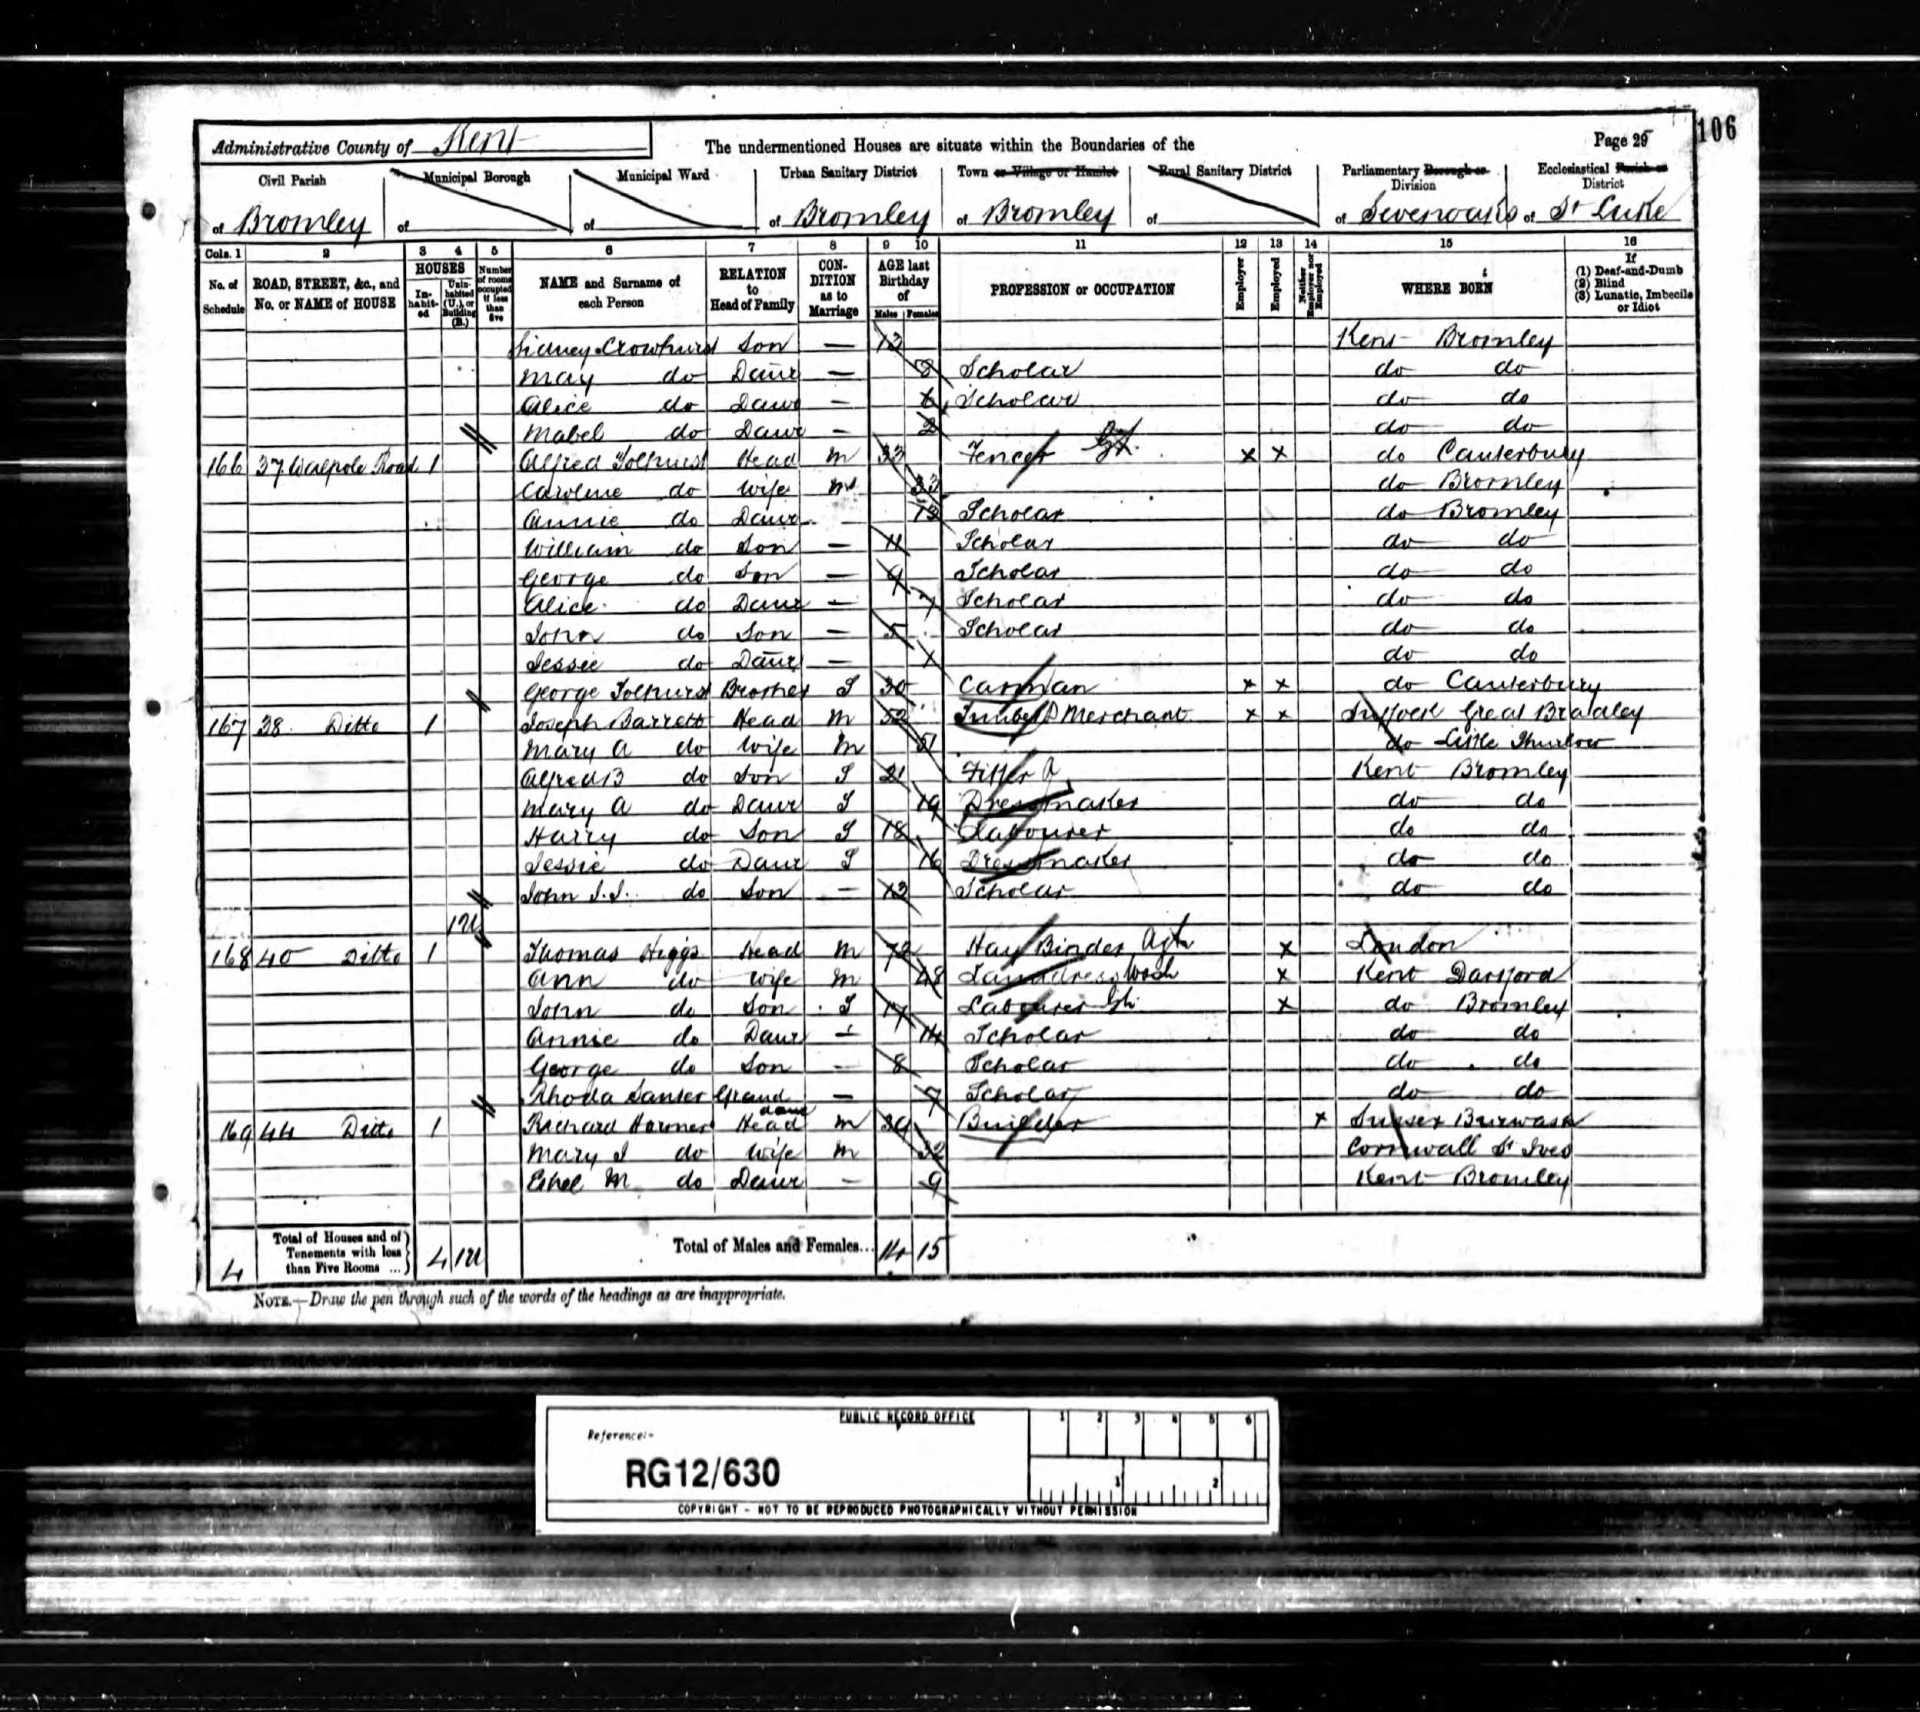 106
Administrative County of Kent The undermentioned Houses are situate within the Boundaries of the Page 25
Civil Parish Municipal Borough Municipal Ward Urban Sanitary District Town or Village or Hamlet Rural Sanitary District Parliamentary Borough or Division Ecclesiastical Parish or District
of Bromley of of of Bromley of Bromley of of Sevenoaks of St Luke
Cols. 1 2 3 4 5 6 7 8 9 10 11 12 13 14 15 16
No. of Schedule ROAD, STREET, &c., and No. or NAME of HOUSE HOUSES In-habit-ed Unin-habited (U.), or Building (B.) Number of rooms occupied if less than five NAME and Surname of each Person RELATION to Head of Family CON-DITION as to Marriage AGE last Birthday of Males Females PROFESSION or OCCUPATION Employer Employed Neither Employer nor Employed WHERE BORN If (1) Deaf-and-Dumb (2) Blind (3) Lunatic, Imbecile or Idiot
Sidney Crowhurst Son — 13 Kent Bromley
May do Daur — 8 Scholar do do
Alice do Daur — 6 Scholar do do
Mabel do Daur — 2 do do
166 37 Walpole Road 1 Alfred Tolhurst Head M 33 Fencer x x do Canterbury
Caroline do Wife M 33 do Bromley
Annie do Daur 13 Scholar do Bromley
William do Son — 11 Scholar do do
George do Son — 9 Scholar do do
Alice do Daur — 7 Scholar do do
John do Son — 5 Scholar do do
Jessie do Daur — do do
George Tolhurst Brother S 30 Carman x x do Canterbury
167 38 Ditto 1 Joseph Barrett Head M 52 Timber Merchant x x Suffock Great Bradley
Mary A do Wife M 51 do Little Thurlow
Alfred B do Son S 21 Kent Bromley
Mary A do Daur S 19 Dressmaker do do
Harry do Son S 18 Labourer do do
Jessie do Daur S 16 Dressmaker do do
John J.J. do Son — 12 Scholar do do
1U
168 40 Ditto 1 Thomas Higgs Head M 72 Hay Binder Agr x London
Ann do Wife M 48 Laundress Wash x Kent Dartford
John do Son S 17 Labourer x do Bromley
Annie do Daur — 14 Scholar do do
George do Son — 8 Scholar do do
Rhoda Grand daur — 7 Scholar do do
169 44 Ditto 1 Richard Harmer Head M 39 Builder x Sussex Burwash
Mary J do Wife M 32 Cornwall St Ives
Ethel M do Daur — 9 Kent Bromley
4 Total of Houses and of Tenements with less than Five Rooms ... 4 1U Total of Males and Females... 14 15
NOTE.—Draw the pen through such of the words of the headings as are inappropriate.
PUBLIC RECORD OFFICE
1 2 3 4 5 6
Reference:-
RG12/630
1 2
COPYRIGHT - NOT TO BE REPRODUCED PHOTOGRAPHICALLY WITHOUT PERMISSION